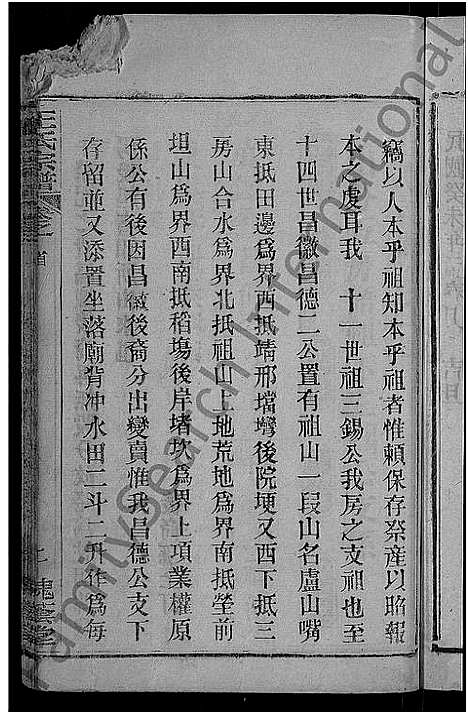 竊以人本乎祖知本乎祖者惟賴保存祭產以昭報
本之虔耳我　十一世祖三錫公我房之支祖也至
十四世昌徽昌德二公置有祖山一段山名盧山嘴
東抵田邊爲界西抵靖邢壋壪後院埂又西下抵三
房山合水爲界北抵祖山上地荒地爲界南抵塋前
坦山爲界西南抵稻塲後岸堵坎爲界上項業權原
係公有後因昌徽後裔分出變賣惟我昌德公支下
存留並又添置坐落廟背冲水田二斗二升作爲每
王氏宗譜
卷之首
槐蔭堂
familysearch International